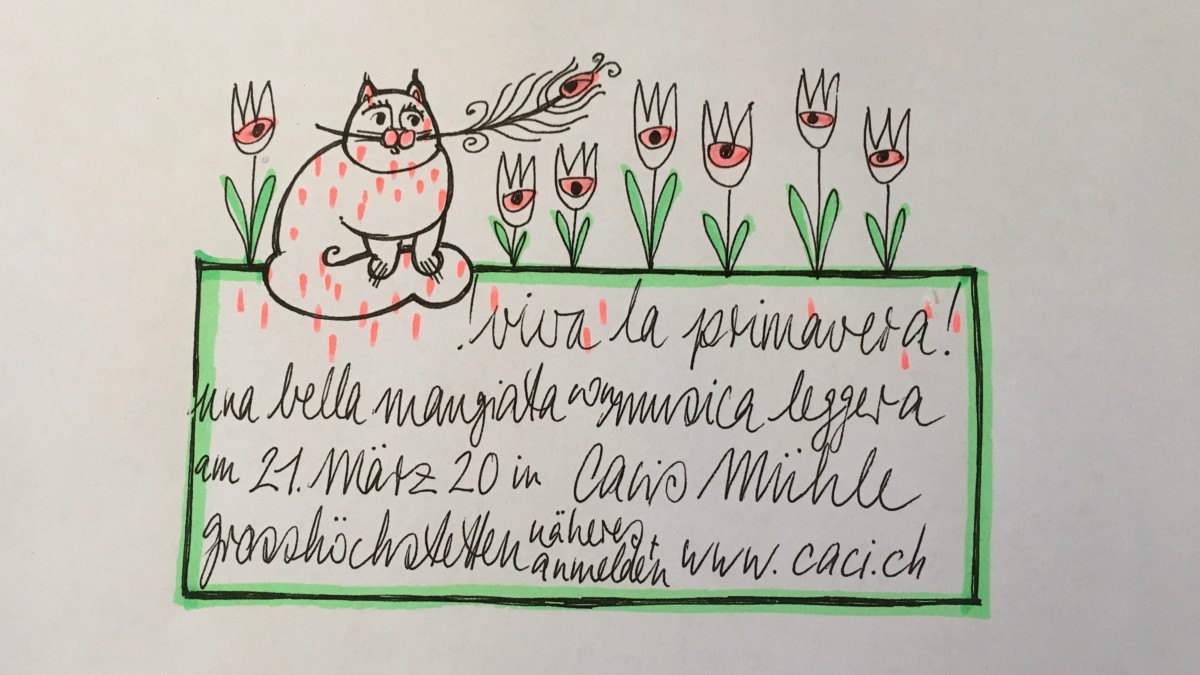 !viva la primavera!
una bella mangiata con musica leggera
am 21. März 20 in Cacis Mühle
grosshöchstetten näheres + anmelden www.caci.ch